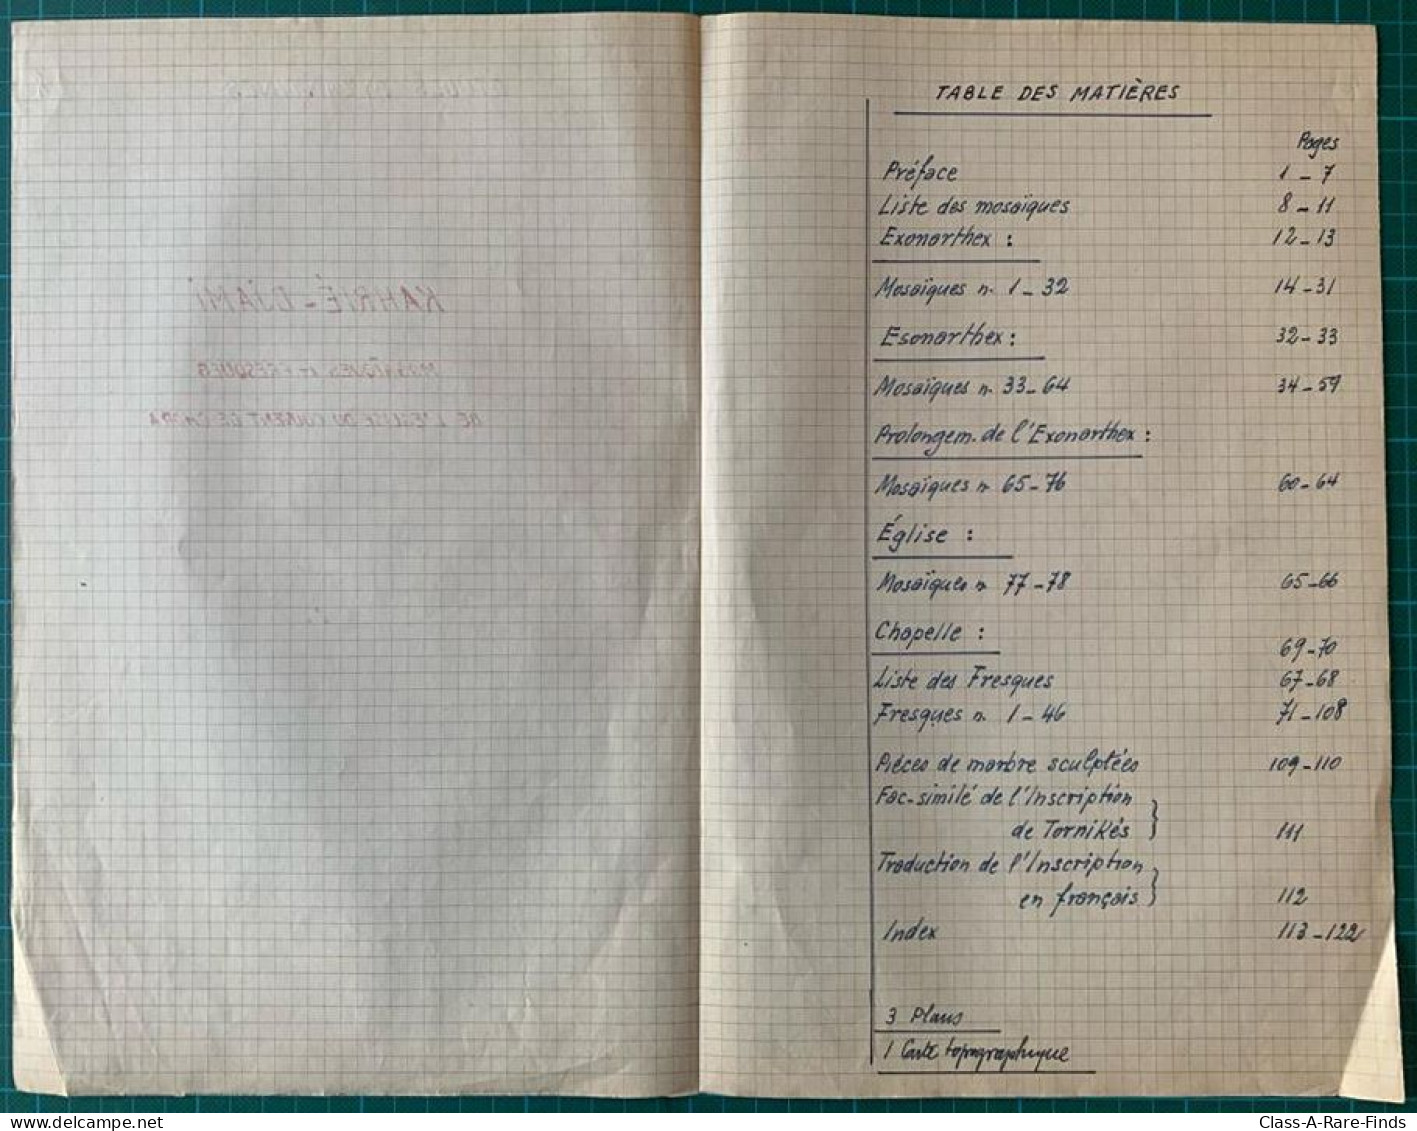 KAHRIÉ-DJAMI
MOSAÏQUES ET FRESQUES
DE L'EGLISE DU COUVENT DE CHORA
TABLE DES MATIÈRES
Pages
Préface 1-7
Liste des mosaïques 8-11
Exonarthex : 12-13
Mosaïques n. 1-32 14-31
Esonarthex : 32-33
Mosaïques n. 33-64 34-59
Prolongem. de l'Exonarthex :
Mosaïques n. 65-76 60-64
Église :
Mosaïques n. 77-78 65-66
Chapelle : 69-70
Liste des Fresques 67-68
Fresques n. 1-46 71-108
Piéces de marbre sculptées 109-110
Fac-similé de l'Inscription
de Tornikés } 111
Traduction de l'Inscription
en français } 112
Index 113-122
3 Plans
1 Carte topographique
Class-A-Rare-Finds